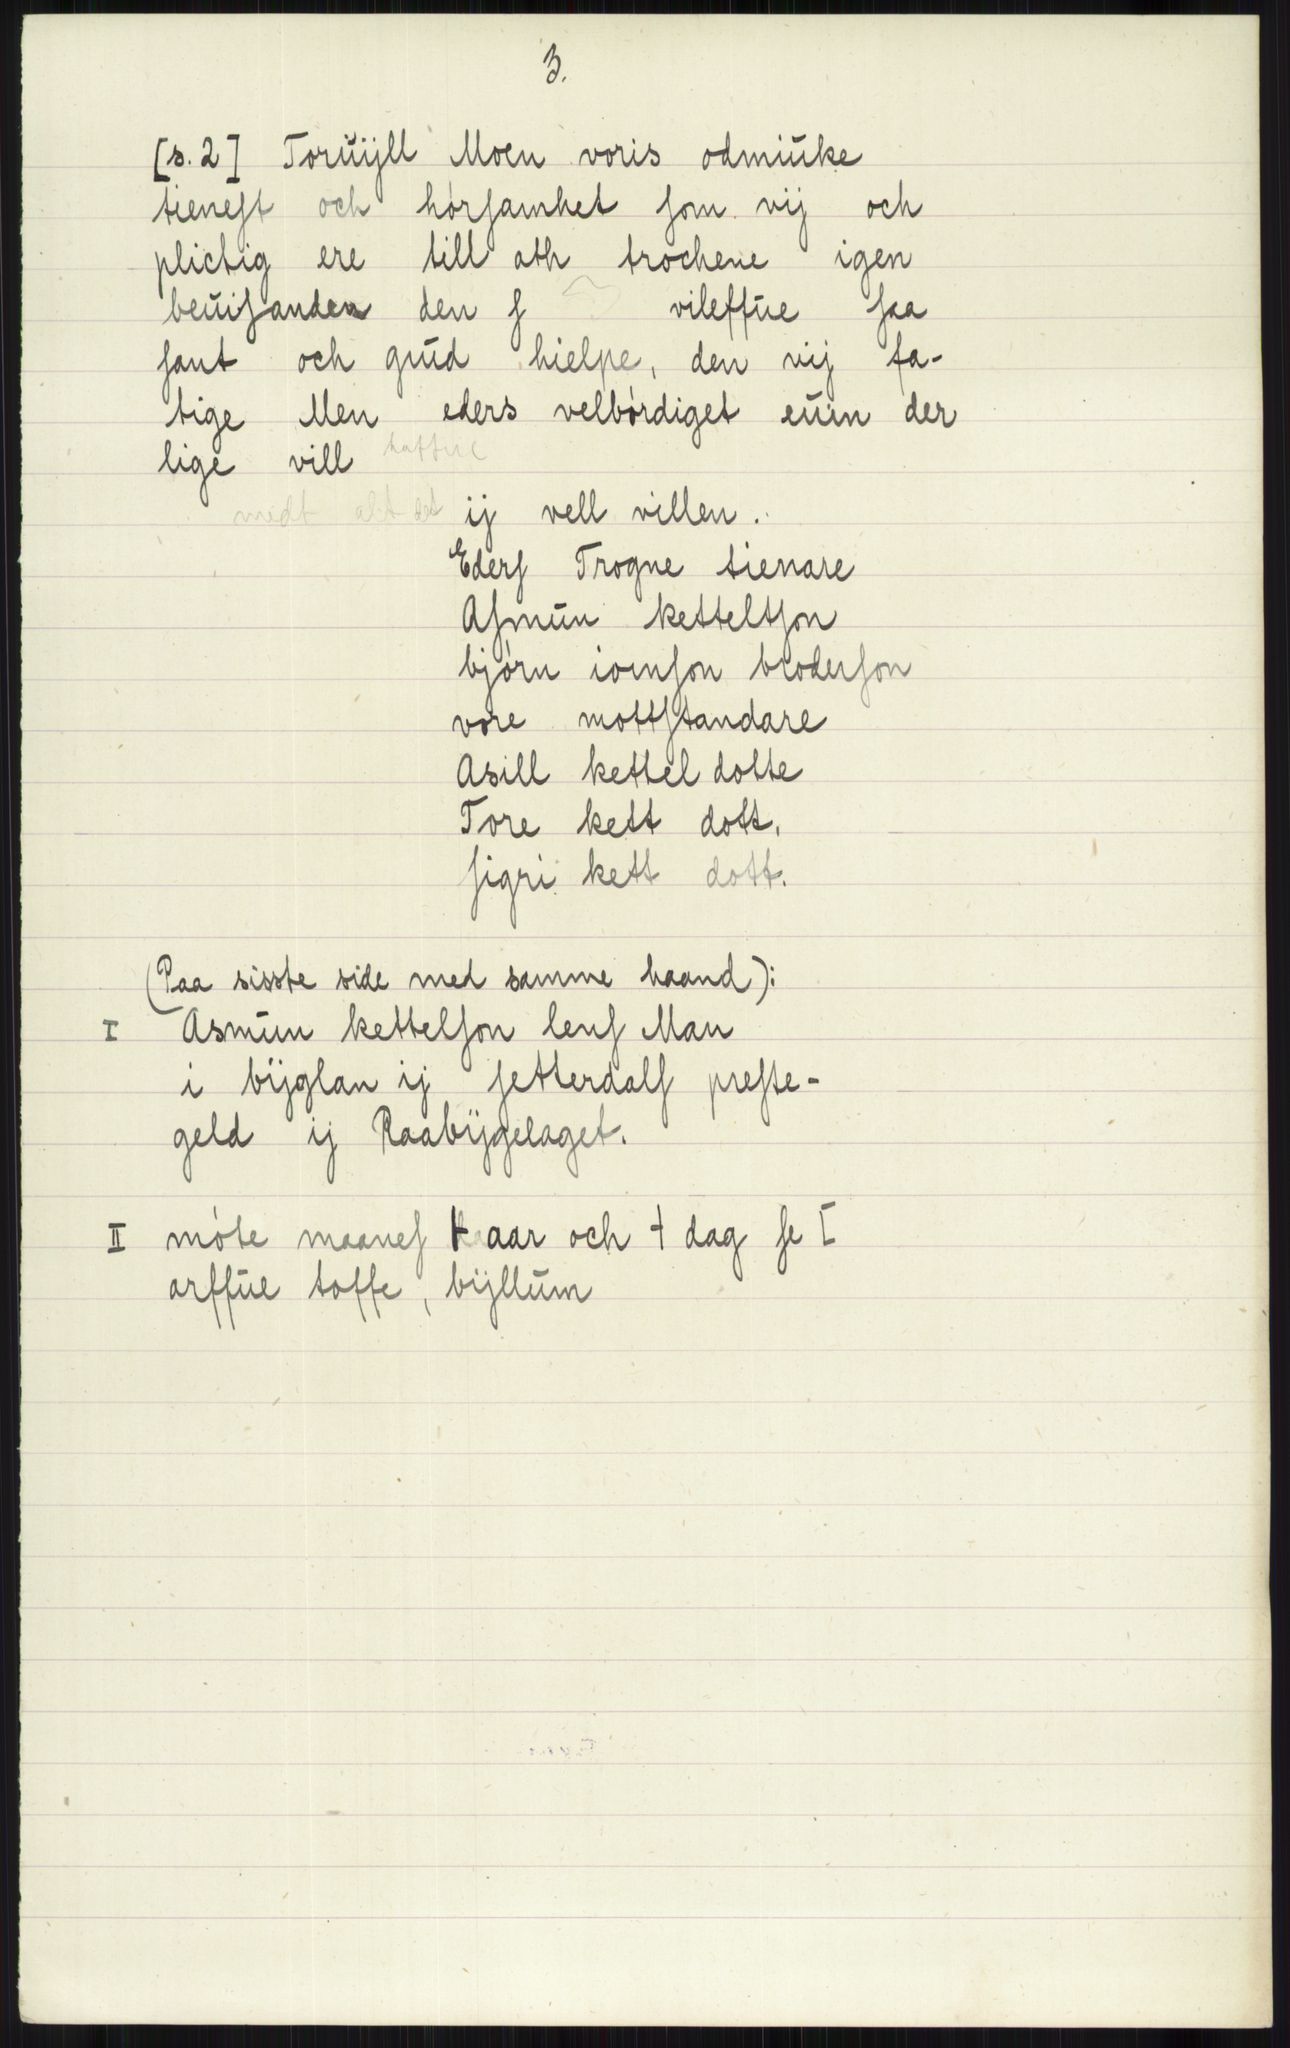 3.
[s. 2] Torŭijll Moen voris odmiŭke
tienest och hórsamhet som vij och
plictig ere till ath trochene igen
beŭisanden den s vileffŭe saa
sant och gŭd hielpe, den vij fa-
tige Men eders velbórdiget eŭin der
lige vill haffŭe
medt alt det ij vell villen.
Eders Trogne tienare
Asmŭn ketteltson
bjórn iomson broderson
vore mottstandare
Asill kettel dotte
Tore kett dott.
sigri kett dott.
(Paa sisste side med samme haand):
I Asmŭn kettelson lens Man
i bijglan ij setterdals preste-
geld ij Raabijgelaget.
II móte maanes aar och dag se [
arffŭe toffe, bijllŭm